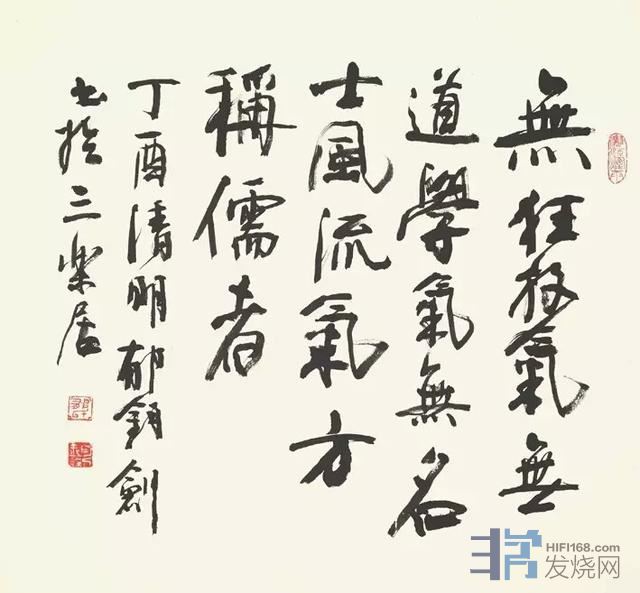 無狂放氣無
道學氣無名
士風流氣方
稱儒者
丁酉清明郁鈞劍
書於三樂居
HIFI168.com
发烧网